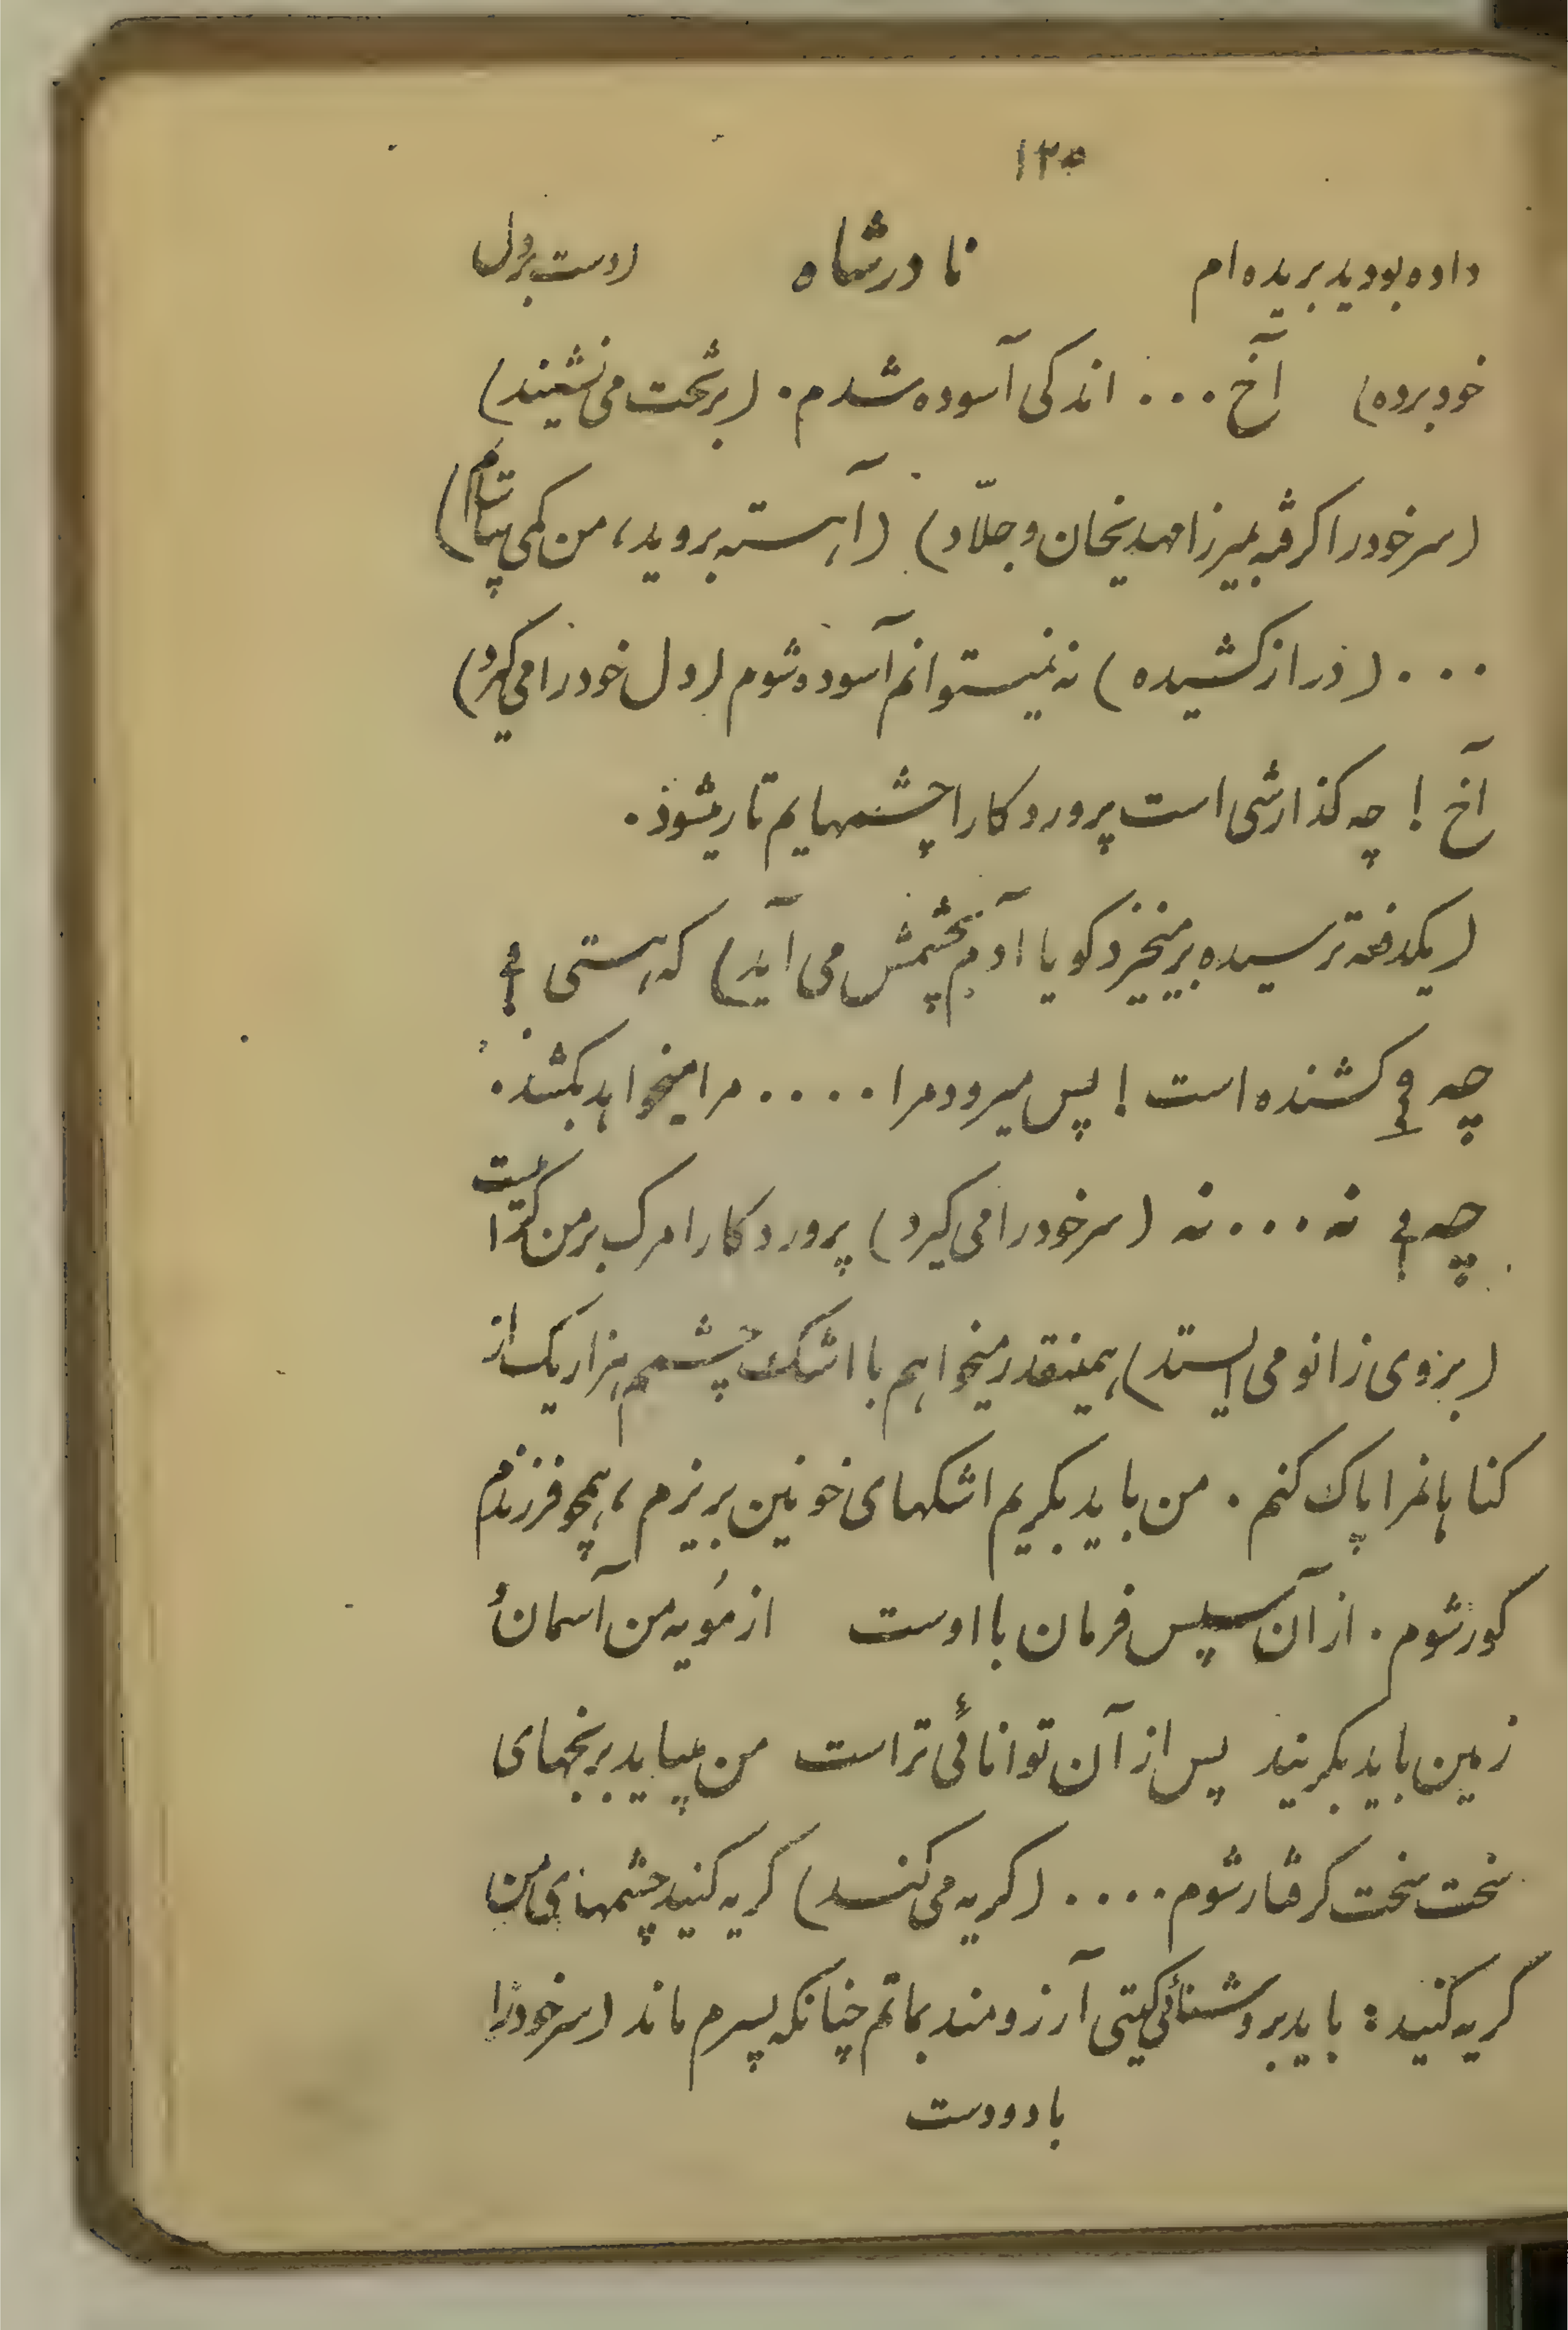 ۱۲۵
داده بودید بریده‌ام نادرشاه (دست بر دل
خود برده) آخ... اندکی آسوده شدم. (بر تخت می نشیند)
(سر خود را گرفته بمیرزا مهدیخان و جلّاد) (آهسته بروید، من کمی بیآسایم)
... (دراز کشیده) نه نمیتوانم آسوده شوم (دل خود را می گیرد)
آخ! چه گذارشی است پروردکارا چشمهایم تار میشود.
(یکدفعه ترسیده برمیخیزد کویا آدم بچشمش می آید) که هستی؟
چه؟ کشنده است! پس میرود مرا.... مرا میخواهد بکشد.
چه؟ نه... نه (سر خود را می کیرد) پروردکارا مرک بر من کتر است
(بزوی زانو می ایستد) همینقدر میخواهم با اشک چشمم هزار یک از
کناهانمرا پاک کنم. من باید بکریم اشکهای خونین بریزم، همچو فرزندم
کور شوم. از آن سپس فرمان با اوست از مُویه من آسمان وُ
زمین باید بکریند پس از آن توانائی تراست من میباید برنجهای
سخت سخت کرفتار شوم.... (کریه می کند) کریه کنید چشمهای من
کریه کنید: باید بروشنائی کیتی آرزومند بمانم چنانکه پسرم ماند (سر خود را
با دو دست